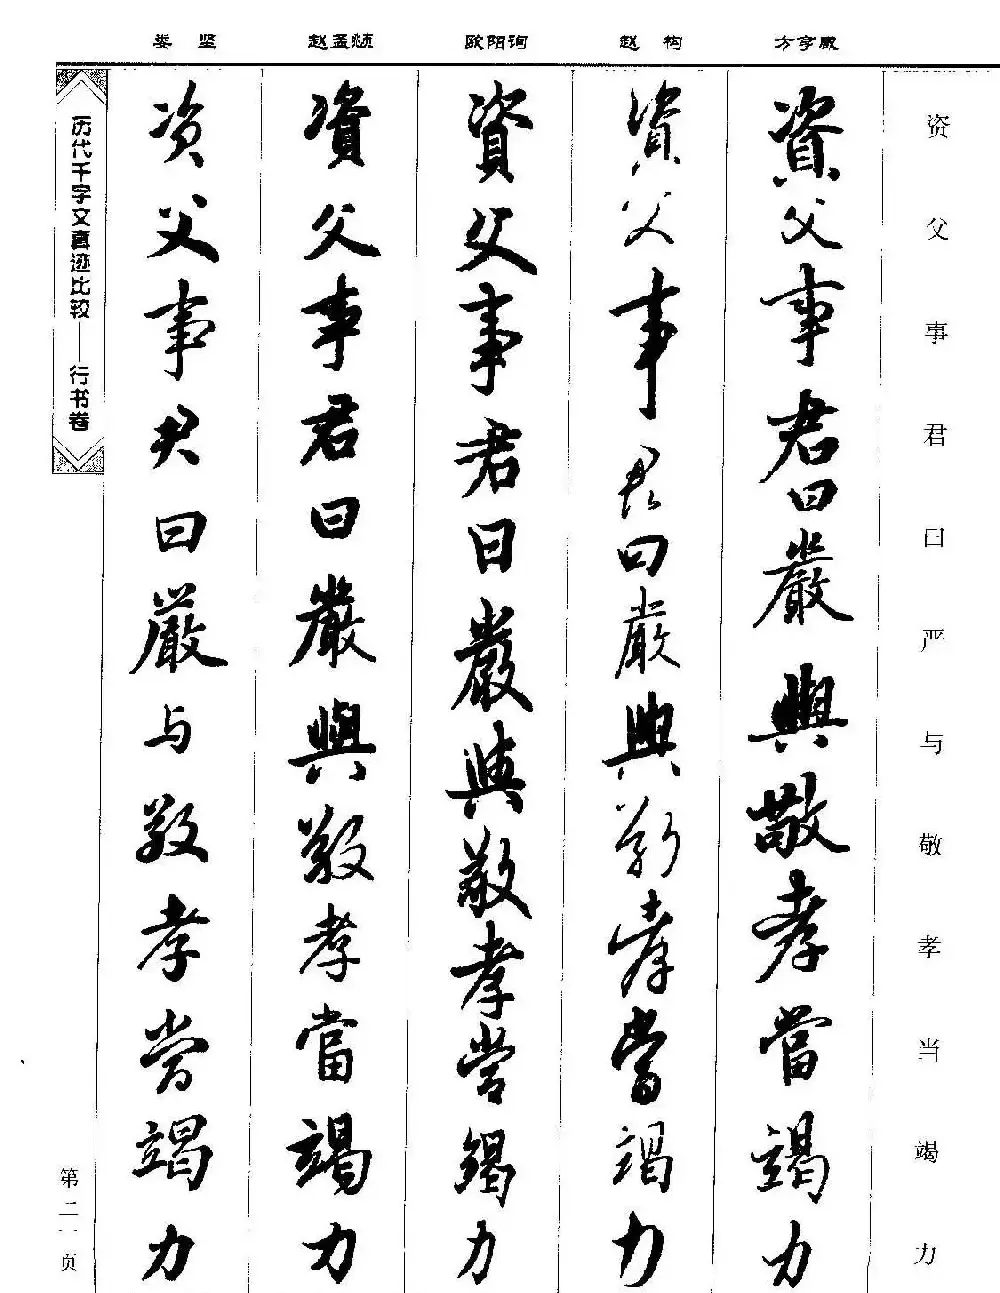 娄坚 赵孟頫 欧阳询 赵构
资父事君曰严与敬孝当竭力
資父事君曰嚴與敬孝當竭力
資父事君曰嚴與敬孝當竭力
資父事君曰嚴與敬孝當竭力
資父事君曰嚴與敬孝當竭力
資父事君曰嚴与敬孝當竭力
历代千字文真迹比较——行书卷
第二一页